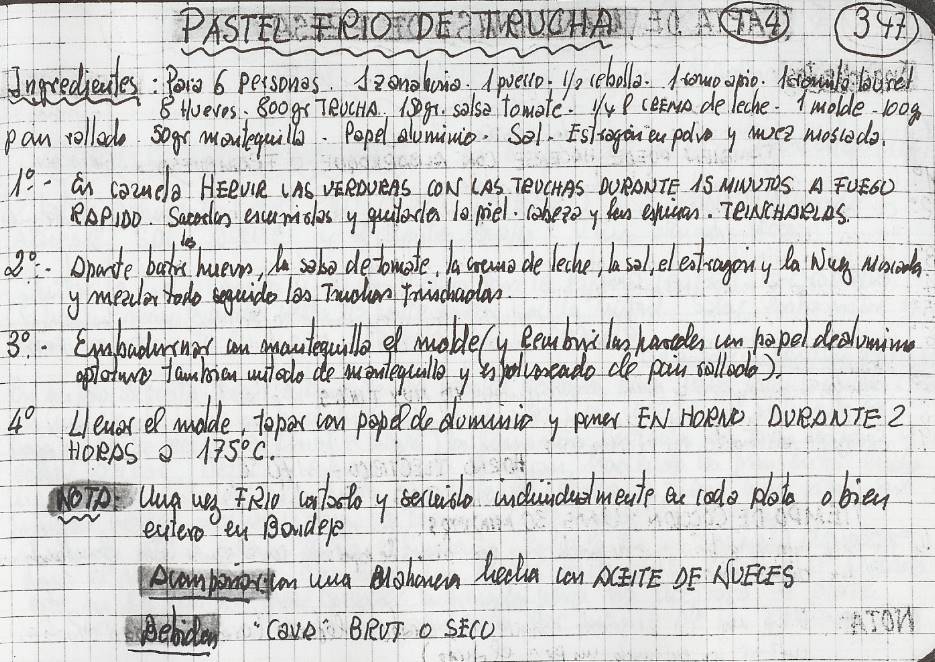 PASTEL FRIO DE TRUCHA (74) (347)
Ingredientes: Para 6 personas. 1 zanahoria. 1 puerro. 1/2 cebolla. 1 tomo apio. 1 ramita laurel
8 Huevos. 800gr TRUCHA. 150gr. salsa tomate. 1/4 l CREMA de leche. 1 molde. 100g
pan rallado. 50gr mantequilla. Papel aluminio. Sal. Estragón en polvo y nuez moscada.
1º.- En cazuela HERVIR LAS VERDURAS CON LAS TRUCHAS DURANTE 15 MINUTOS A FUEGO
RAPIDO. Sacarlas escurrirlas y quitarles la piel. cabeza y las espinas. TRINCHARLAS.
2º.- Aparte batir los huevos, la salsa de tomate, la crema de leche, la sal, el estragon y la Nuez Moscada
y mezclar todo seguido las Truchas Trinchadas.
3º.- Embadurnar con mantequilla el molde (y recubrir las paredes con papel de aluminio
tambien untado de mantequilla y espolvoreado de pan rallado).
4º Llenar el molde, tapar con papel de aluminio y poner EN HORNO DURANTE 2
HORAS a 175ºC.
NOTA- Una vez FRIO cortarlo y servirlo individualmente en cada plato o bien
entero en Bandeja
Acompañar con una Mahonesa hecha con ACEITE DE NUECES
Bebidas "CAVA" BRUT O SECO
NOTA: